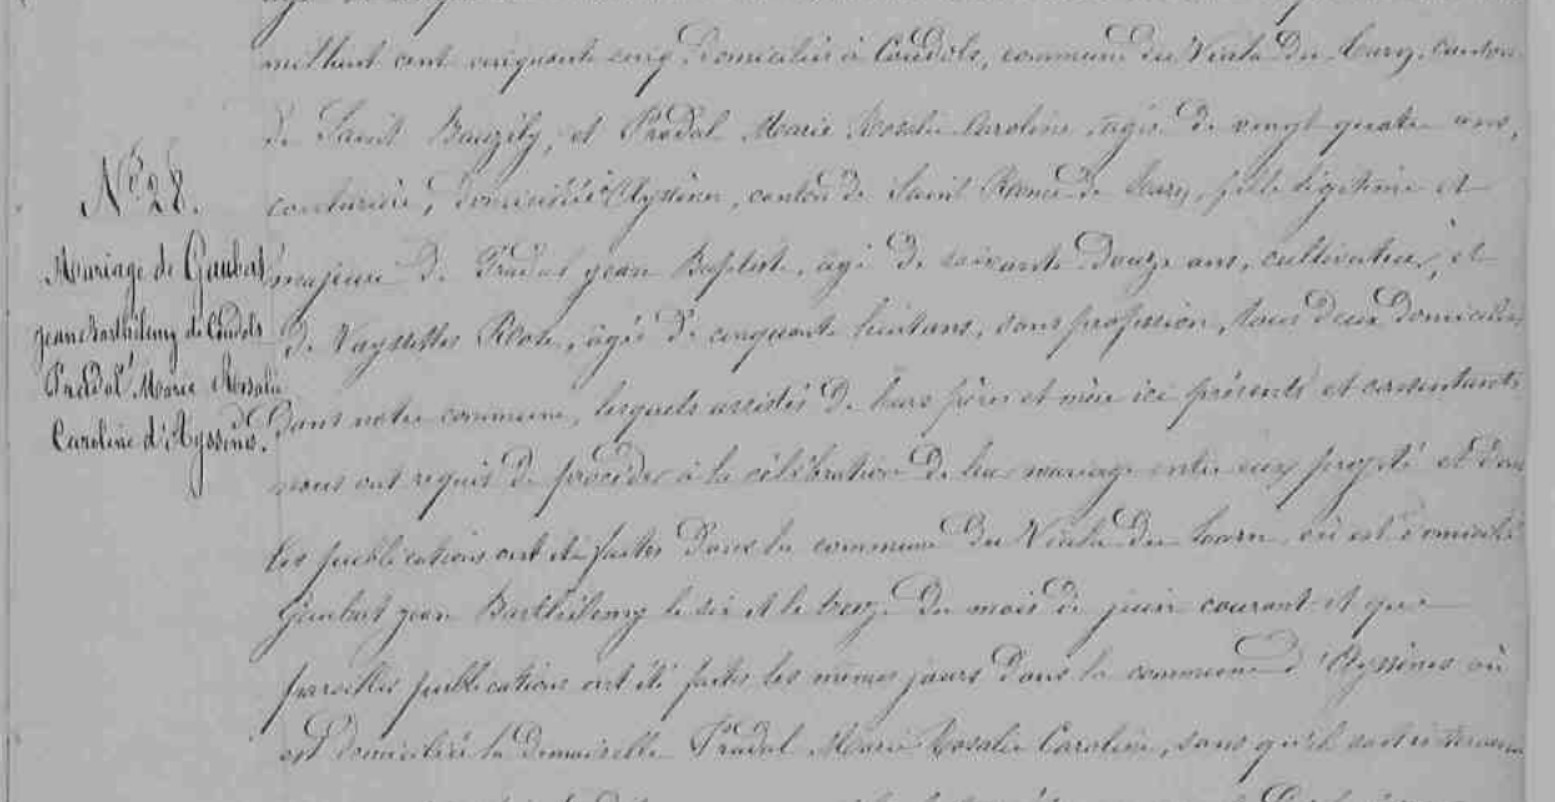 mil huit cent cinquante cinq domiciliés à Coudols, commune du Viala du Tarn, canton
de Saint Bauzély, et Pradal Marie Rosalie Caroline, agée de vingt quatre ans,
couturière, domiciliée à Ayssènes, canton de Saint Rome de Tarn, fille légitime et
majeure de Pradal jean Baptiste, agé de soixante douze ans, cultivateur, et
de Vayssettes Rose, agée de cinquante huit ans, sans profession, tous deux domiciliés
dans notre commune, lesquels assistés de leurs pères et mère ici présents et consentants
nous ont requis de procéder à la célébration de leur mariage entre eux projeté et dont
les publications ont été faites dans la commune du Viala du Tarn où est domicilié
Gaubert jean Barthélemy le six et le treize du mois de juin courant et que
pareilles publications ont été faites les mêmes jours dans la commune d'Ayssènes où
est domiciliée la demoiselle Pradal Marie Rosalie Caroline, sans qu'il soit intervenu
N° 28.
Mariage de Gaubert
jean Barthélemy de Coudols
Pradal Marie Rosalie
Caroline d'Ayssènes.